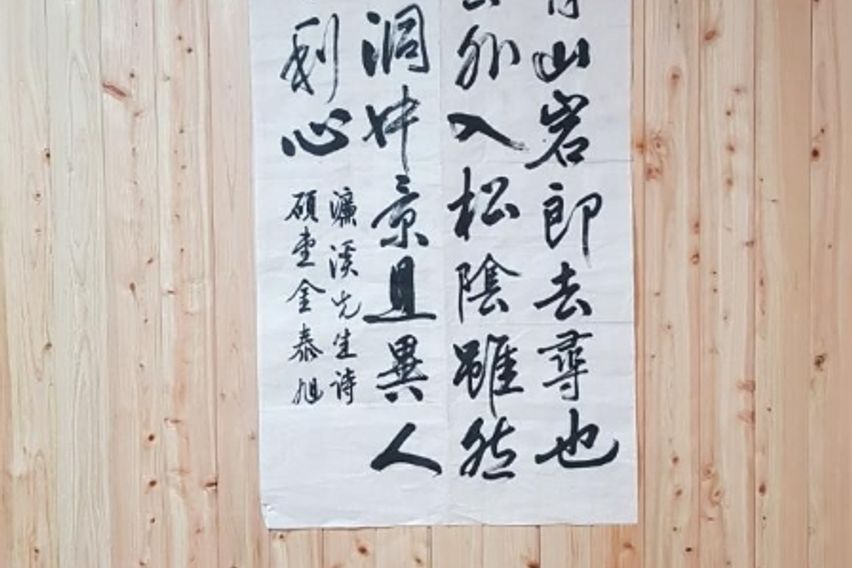 有山岩即去尋也
外入松陰雖然
洞中景且異人
利心
濂溪先生诗
碩堂金泰旭